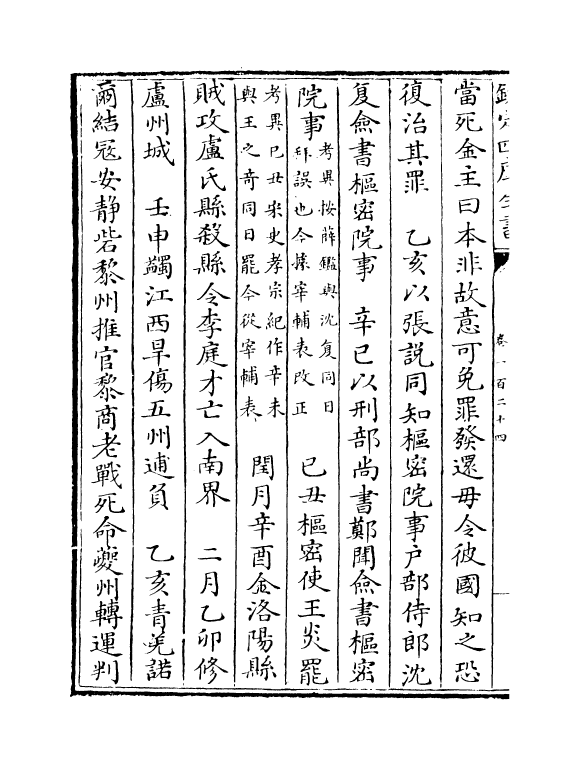 欽定四庫全書
卷一百二十四
當死金主曰本非故意可免罪發還毋令彼國知之恐
復治其罪　乙亥以張説同知樞密院事户部侍郎沈
复僉書樞密院事　辛巳以刑部尚書鄭聞僉書樞密
院事考異按薛鑑與沈复同日
拜誤也今據宰輔表改正　己丑樞密使王炎罷
考異己丑宋史孝宗紀作辛未
與王之奇同日罷今從宰輔表　閏月辛酉金洛陽縣
賊攻盧氏縣殺縣令李庭才亡入南界　二月乙卯修
廬州城　壬申蠲江西旱傷五州逋負　乙亥青羌諾
爾結寇安靜砦黎州推官黎商老戰死命夔州轉運判